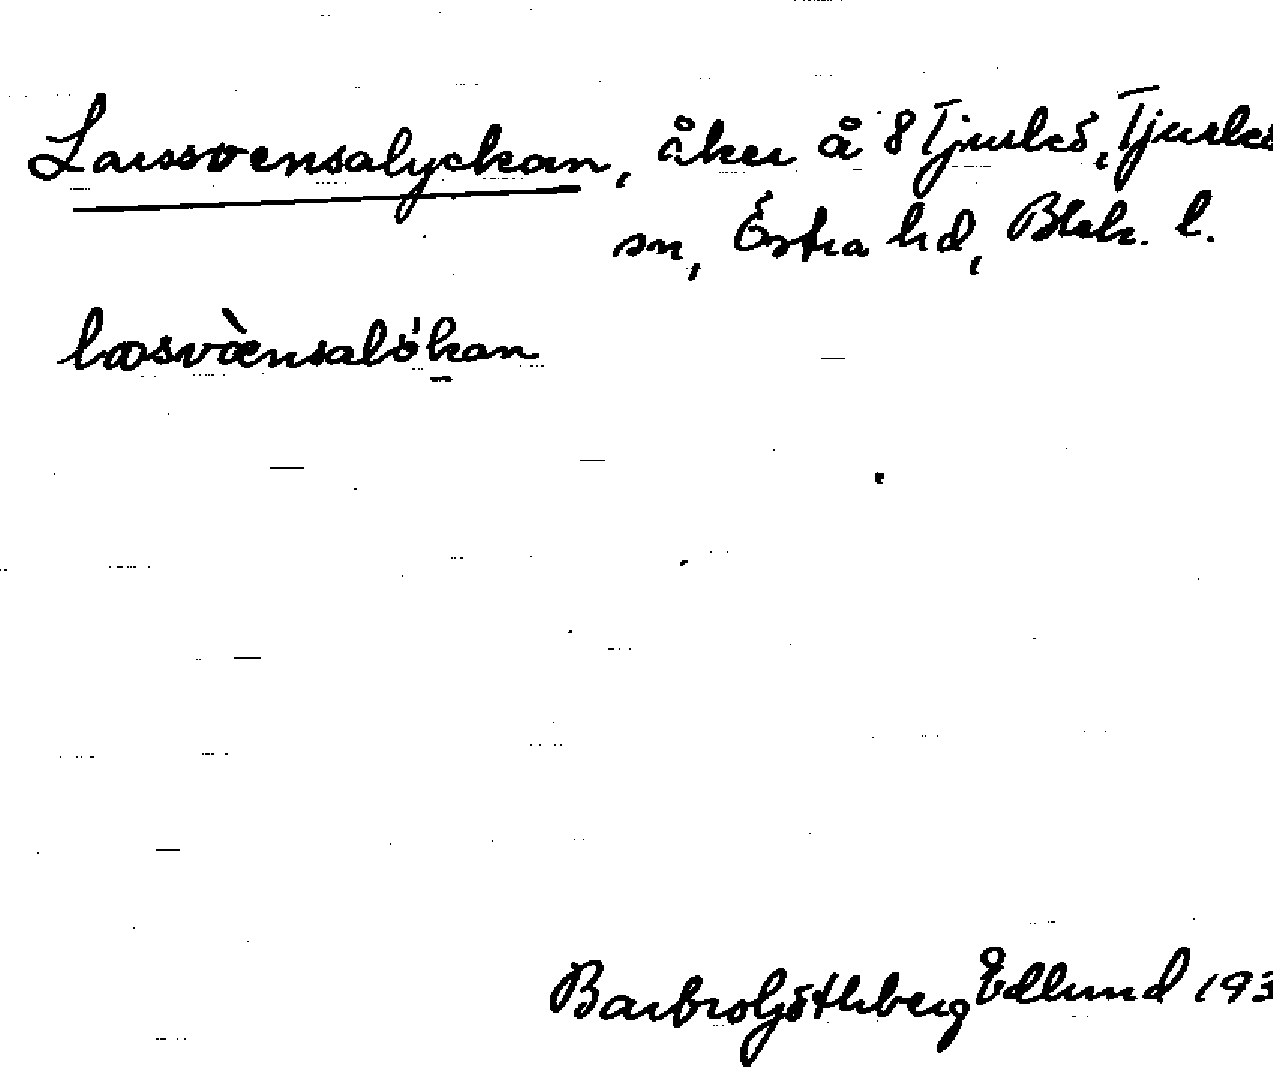 Larssvensalyckan, åker å 8 Tjurkö, Tjurkö
sn, Östra hd, Blek. l.
lasvànsalö́kan
Barbro Göthberg Edlund 193